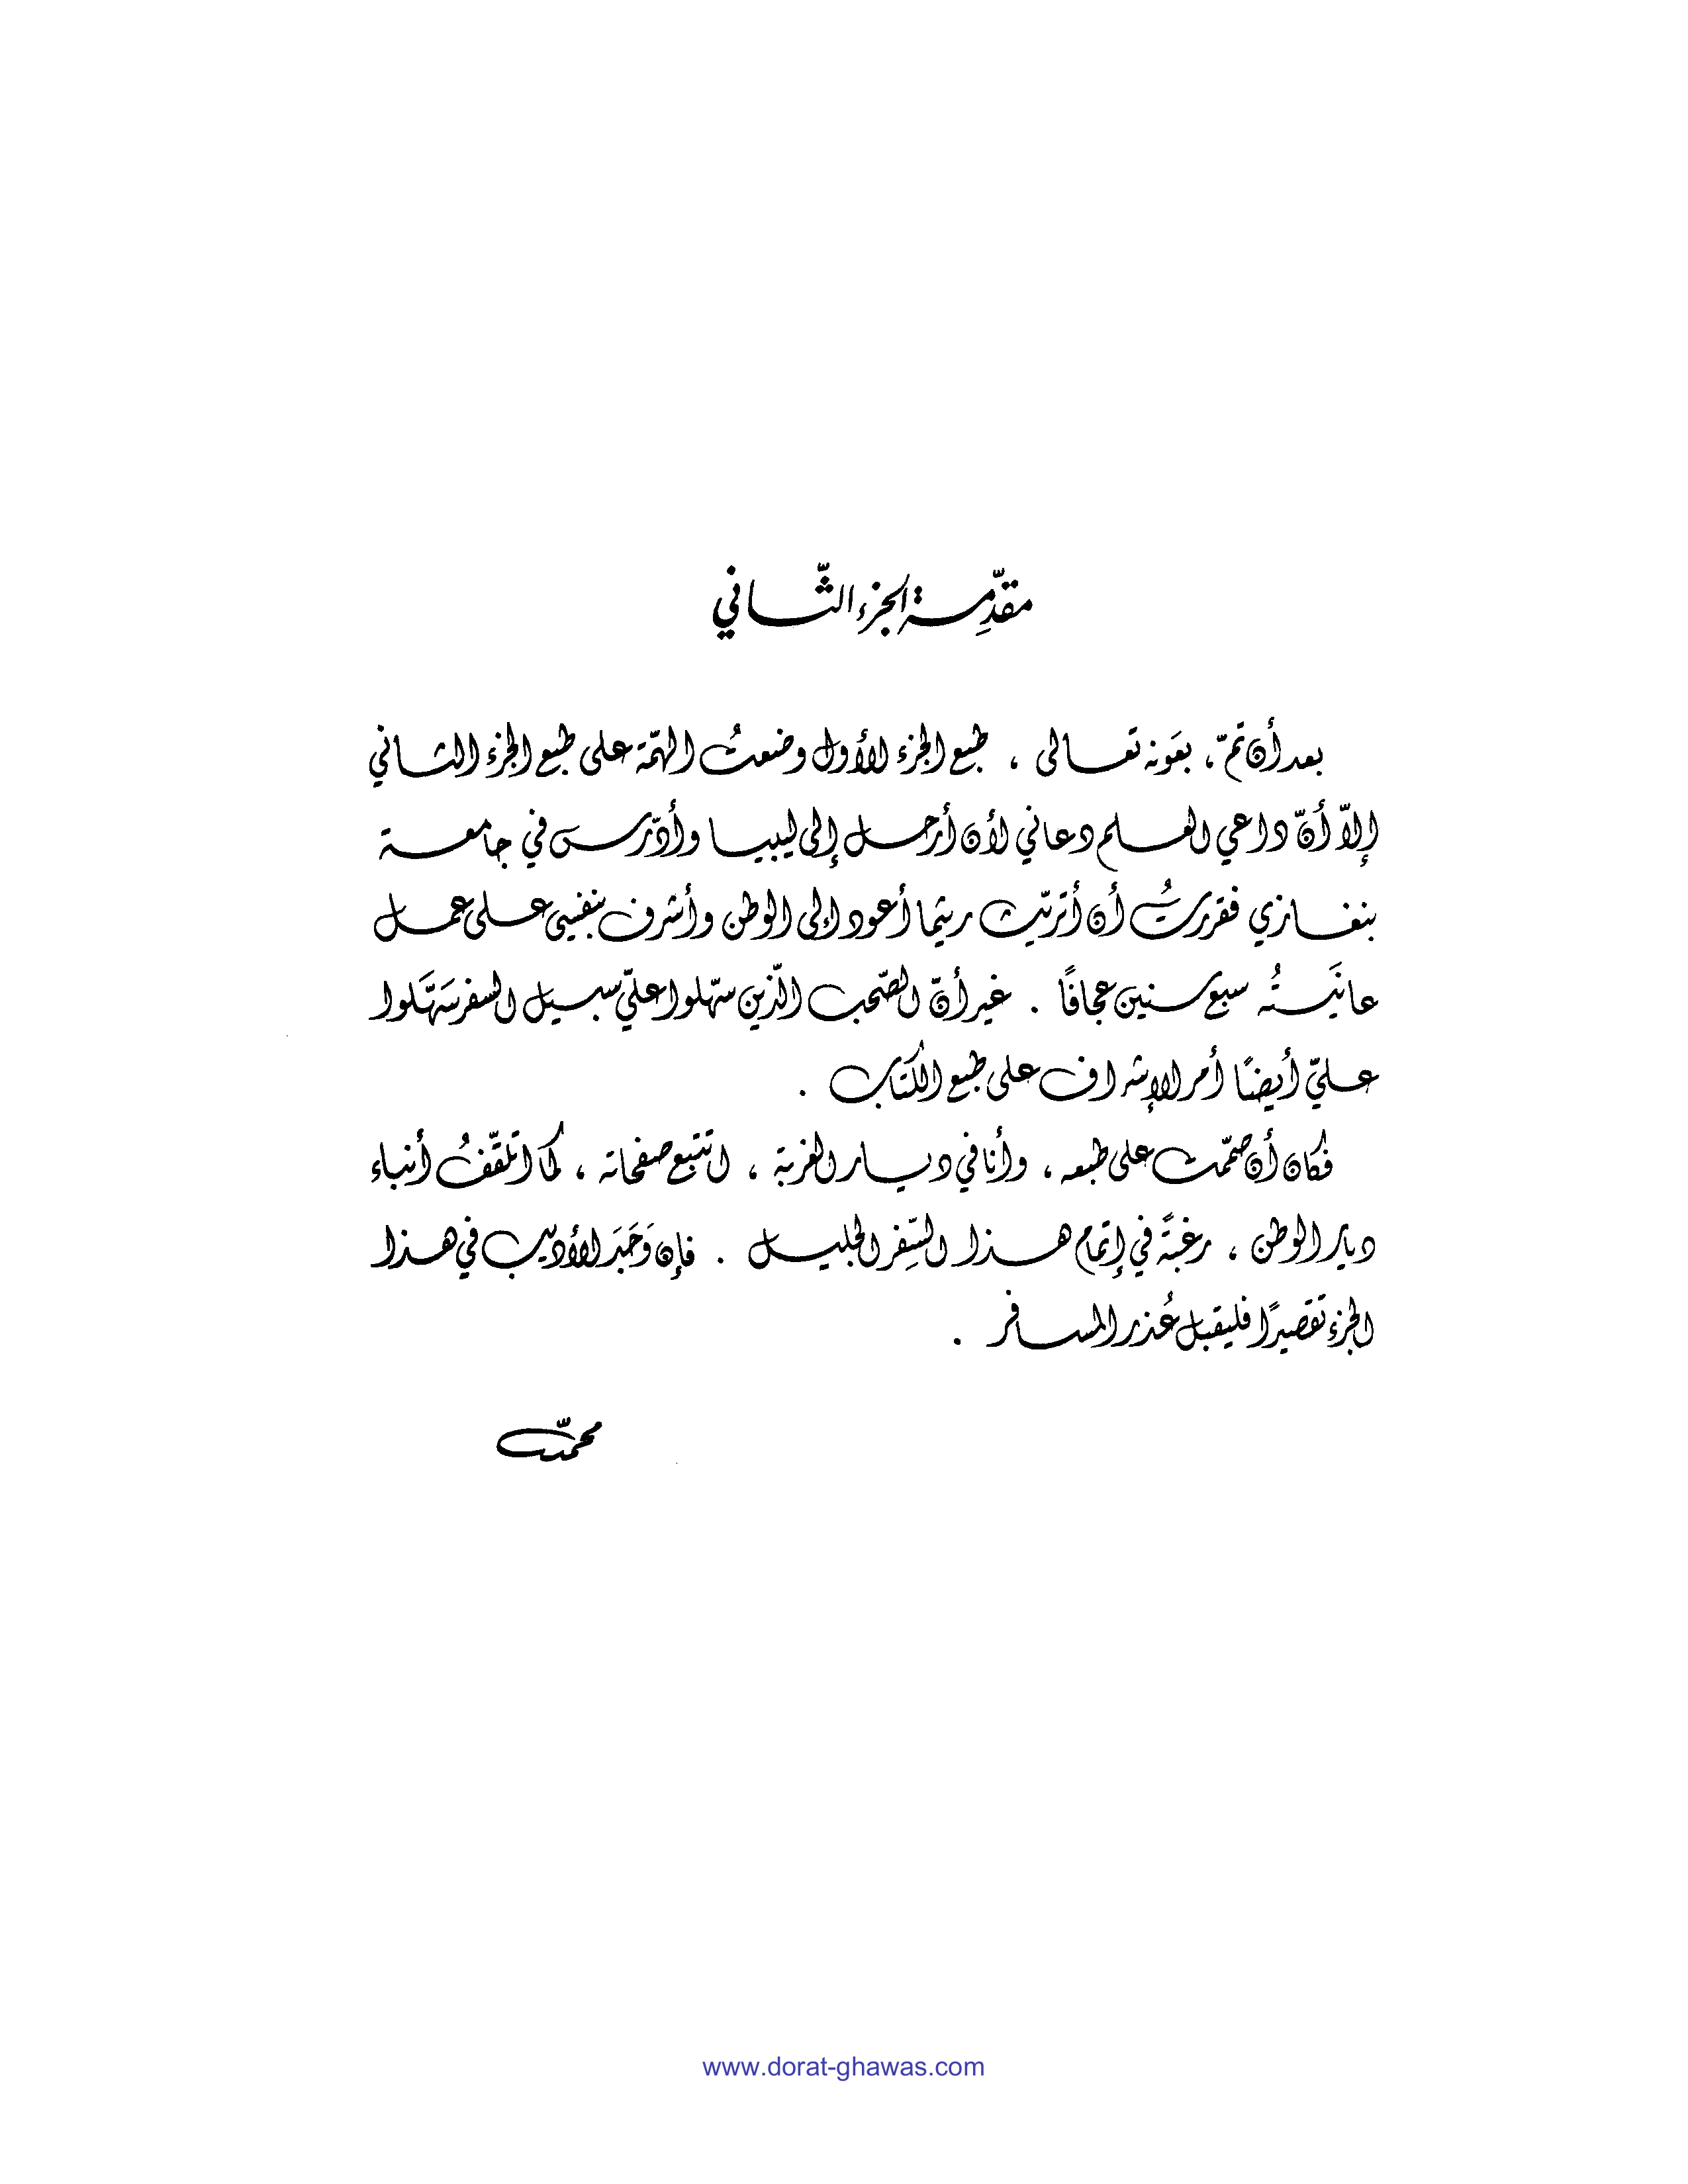 مقدِّمة الجزء الثّاني
بعد أن تمّ ، بعَونه تعالى ، طبع الجزء الأول وضعتُ الهمّة على طبع الجزء الثاني
إلاّ أنّ داعي العلم دعاني لأن أرحل إلى ليبيا وأدّرس في جامعة
بنغازي فقررتُ أن أتريّث ريثما أعود إلى الوطن وأشرف بنفسي على عمل
عانَيتُه سبع سنين عجافًا . غير أنّ الصّحب الّذين سهّلوا عليّ سبيل السفر سَهَّلوا
عليّ أيضًا أمر الإشراف على طبع الكُتاب .
فكان أن صمّمت على طبعه ، وأنا في ديار الغربة ، اتتبع صفحاته ، كما اتلقّفُ أنباء
ديار الوطن ، رغبةً في إتمام هذا السِّفر الجليل . فإن وَجَدَ الأديب في هذا
الجزء تقصيرًا فليقبل عُذر المسافر .
محمّد
www.dorat-ghawas.com